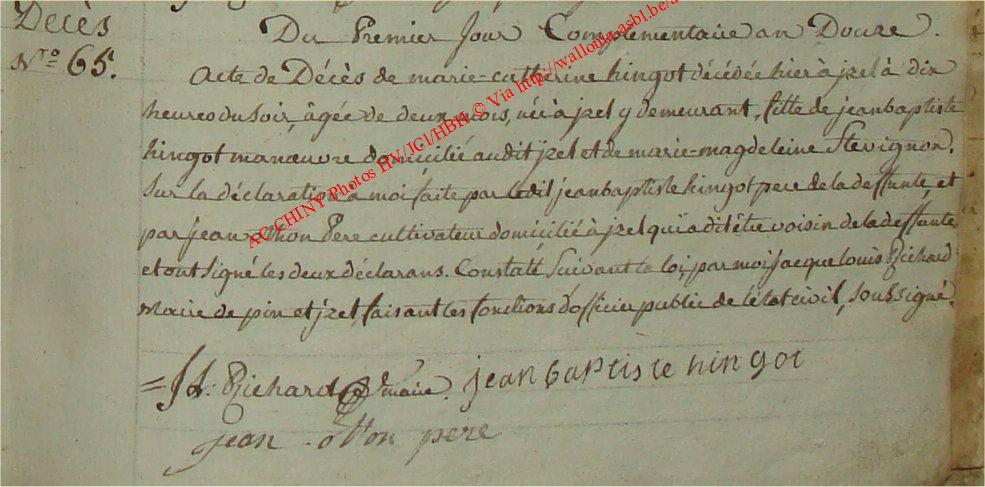 Decès
Nro 65.
Du Premier Jour Complementaire an Douze.
Acte de Décès de marie-catherine hingot décédée hier à jzel à dix
heures du soir, âgée de deux mois, née à jzel y demeurant, fille de jean baptiste
hingot manœuvre domicilié audit jzel et de marie-magdeleine Stévignon.
Sur la déclaration a moi faite par ledit jean baptiste hingot pere de la deffunte, et
par jean othon Pere cultivateur domicilié à jzel qui a dit être voisin de la deffunte
et ont signé les deux déclarans. Constaté Suivant la loi, par moi Jacque louis Richard
Maire de pin et jzel, faisant les fonctions d'officier public de l'état civil, Soussigné.
J L. Richard maire. jean baptiste hingot
jean otton pere
AC CHINY Photos HV/JCl/HBH © Via http://wallonia-asbl.be/